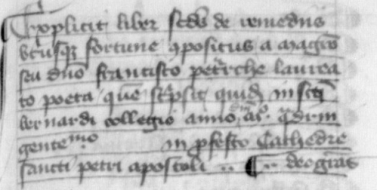 Explicit liber scds de remediis
utriusq fortune gpositus a magro
seu dno francisco petrrche laurea
to poeta que scripsit quid in scti
bernardi collegio anno
gentemo in profesto Cathedre
sancti petri apostoli .. deo gras